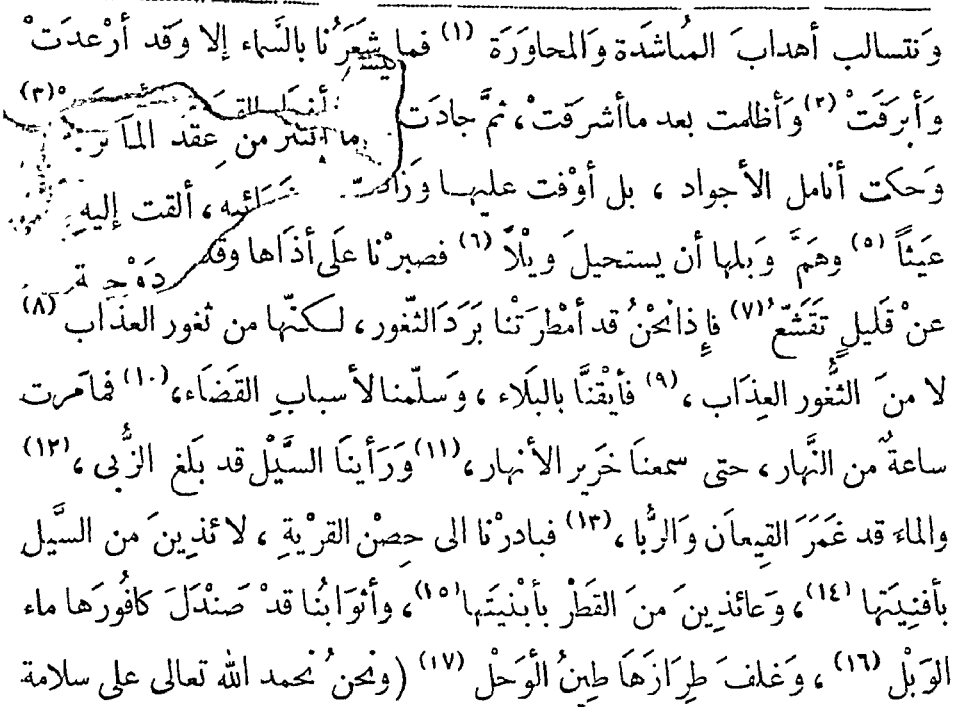 وَنتسالب أهدابَ المناشدة وَالمحاوَرَة (١) فما شعَرْنا بالسَّماء إلا وَقد أرْعدَتْ
وَأبرَقتْ (٢) وَأظلمت بعد ماأشرَقتْ، ثمَّ جادَت (٣)
وَحكت أنامل الأجواد ، بل أوْفت عليها وَزادت ، ألقت إليه
عَيثاً (٥) وهَمَّ وَبلها أن يستحيلَ وَيْلاً (٦) فصبرْنا عَلَى أذَاها وقد
عنْ قَليلٍ تَقَشَّعُ (٧) فإذانحْنُ قد أمْطرَتْنا بَرَدَالثّغور ، لكنّها من ثغور العذَاب (٨)
لا منَ الثُّغور العِذَاب ، (٩) فأيْقنَّا بالبَلَاء ، وَسلّمنالأسبابِ القَضَاء، (١٠) فمامَرت
ساعةٌ من النَّهار ، حتى سمعنَا خَرِير الأنهار، (١١) وَرَأينَا السَّيْل قد بَلغ الزُّبى ، (١٢)
والماءَ قد غَمَرَ القِيعانَ وَالرُّبا ، (١٣) فبادرْنا الى حِصْن القرْيةِ ، لائذِينَ من السَيل
بأفنِيَتِها (١٤)، وَعائذِينَ منَ القَطْر بأبْنيَتِها (١٥)، وأثوَابُنا قدْ صَنْدَلَ كافُورَها ماء
الوَبْل (١٦) ، وَغلفَ طِرَازَهَا طِينُ الوَحْل (١٧) (ونحنُ نحمد الله تعالى على سلامة